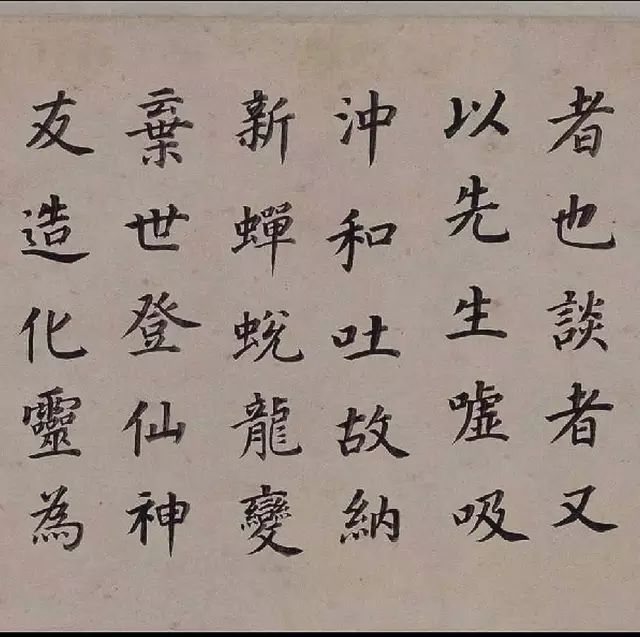 者也談者又
以先生噓吸
沖和吐故納
新蟬蛻龍變
棄世登仙神
友造化靈為